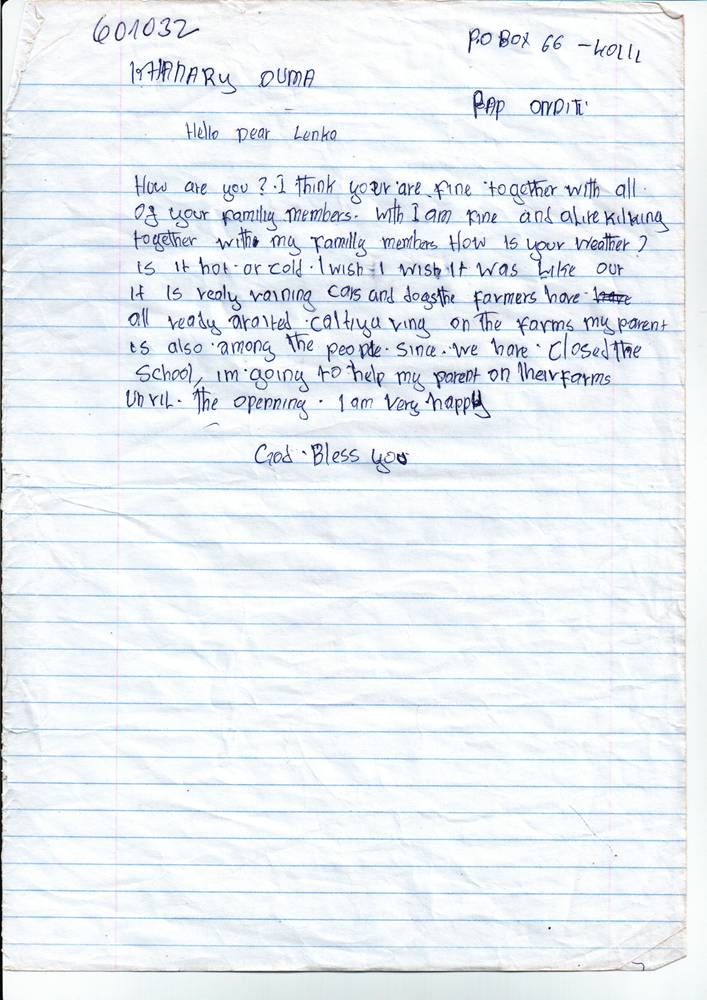 601032
P.O BOX 66 - 40111
OUMA
PAP ONDITI
Hello Dear Lenka
How are you? I think your are fine together with all
Of your familiy members. with I am fine and alire
together with my familly members How is your weather?
is it hot or cold. I wish I wish it was like our
it is realy raining cars and dogs the farmers have have
all ready on the farms my parent
is also among the people. since we have closed the
school, im going to help my parent on their farms
Unril. the openning. I am very happy
God Bless you